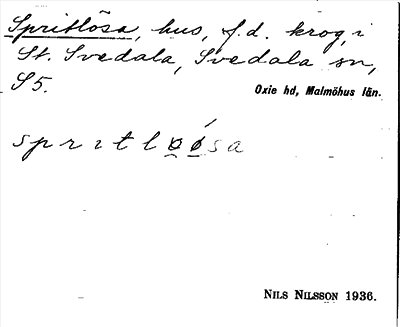 Spritlösa, hus, f.d. krog, i
St. Svedala, Svedala sn,
S 5.
Oxie hd, Malmöhus län.
sprıtlǫǿ̱sa
NILS NILSSON 1936.